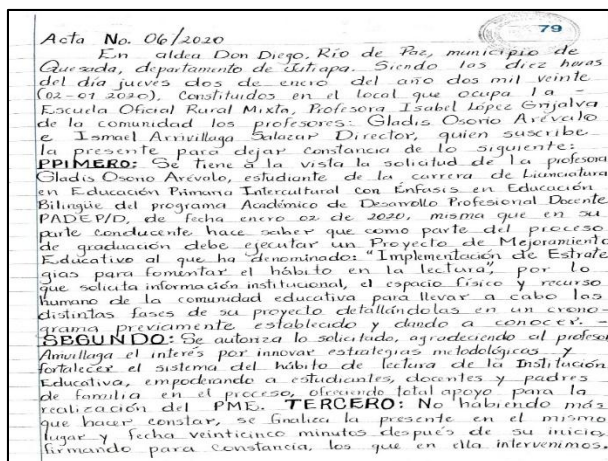 79
Acta No. 06/2020
En aldea Don Diego, Río de Paz, municipio de
Quesada, departamento de Jutiapa. Siendo las diez horas
del día jueves dos de enero del año dos mil veinte
(02-01 2020), Constituidos en el local que ocupa la -
Escuela Oficial Rural Mixta, Profesora Isabel López Grijalva
de la comunidad los profesores: Gladis Osorio Arévalo
e Ismael Arrivillaga Salazar Director, quien suscribe
la presente para dejar constancia de lo siguiente:
PPIMERO: Se tiene a la vista la solicitud de la profesora
Gladis Osorio Arévalo, estudiante de la carrera de Licenciatura
en Educación Primaria Intercultural con Énfasis en Educación
Bilingüe del programa Académico de Desarrollo Profesional Docente
PADEP/D, de fecha enero 02 de 2020, misma que en su
parte conducente hace saber que como parte del proceso
de graduación debe ejecutar un Proyecto de Mejoramiento
Educativo al que ha denominado: "Implementación de Estrate
gias para fomentar el hábito en la lectura", por lo
que solicita información institucional, el espacio físico y recurso
humano de la comunidad educativa para llevar a cabo las
distintas fases de su proyecto detallándolas en un crono-
grama previamente establecido y dando a conocer. -
SEGUNDO: Se autoriza lo solicitado, agradeciendo al profesor
Arrivillaga el interés por innovar estrategias metodológicas y
fortalecer el sistema del hábito de lectura de la Institución
Educativa, empoderando a estudiantes, docentes y padres
de familia en el proceso, ofreciendo total apoyo para la
realización del PME. TERCERO: No habiendo más
que hacer constar, se finaliza la presente en el mismo
lugar y fecha veinticinco minutos después de su inicio,
firmando para constancia, los que en ella intervenimos.